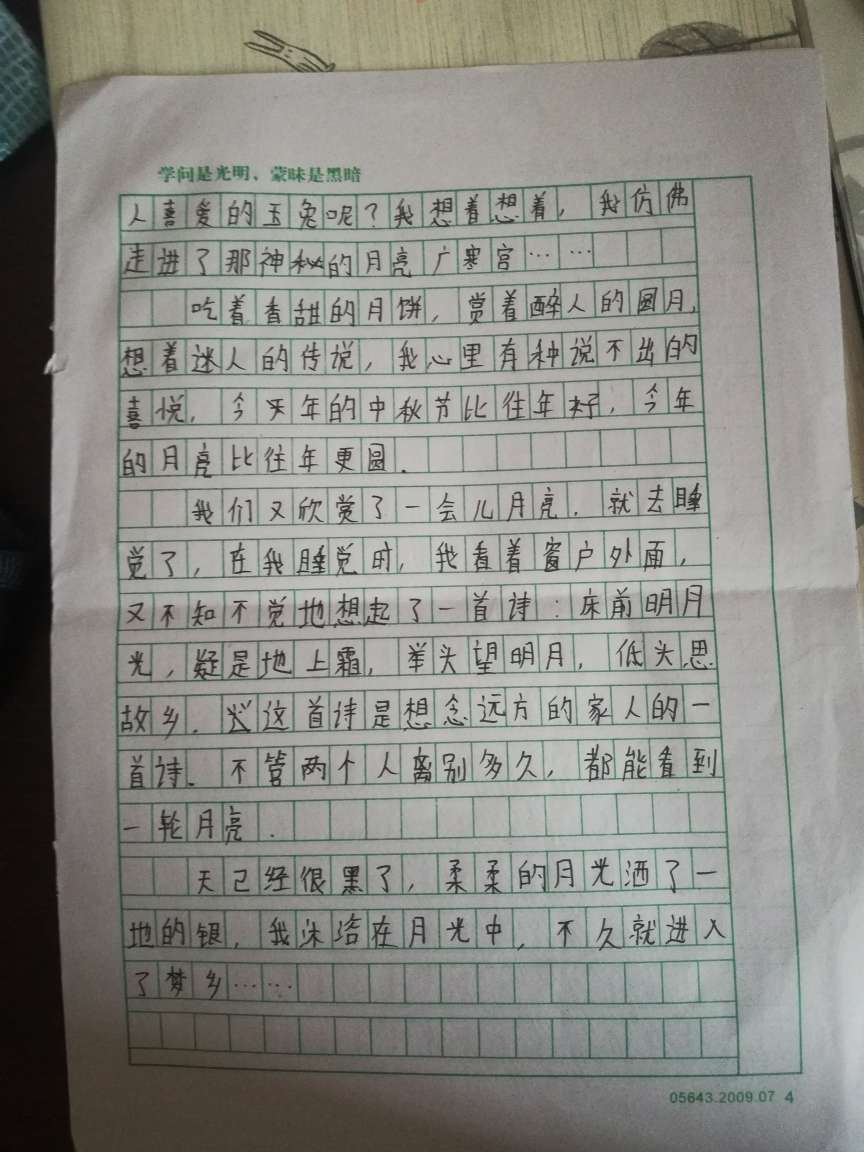 学问是光明、蒙昧是黑暗
人喜爱的玉兔呢？我想着想着，我仿佛
走进了那神秘的月亮广寒宫……
吃着香甜的月饼，赏着醉人的圆月，
想着迷人的传说，我心里有种说不出的
喜悦．今年的中秋节比往年好．今年
的月亮比往年更圆．
我们又欣赏了一会儿月亮．就去睡
觉了，在我睡觉时，我看着窗户外面，
又不知不觉地想起了一首诗：床前明月
光，疑是地上霜，举头望明月，低头思
故乡．这首诗是想念远方的家人的一
首诗．不管两个人离别多久，都能看到
一轮月亮．
天已经很黑了，柔柔的月光洒了一
地的银，我沐浴在月光中，不久就进入
了梦乡……
05643.2009.07 4